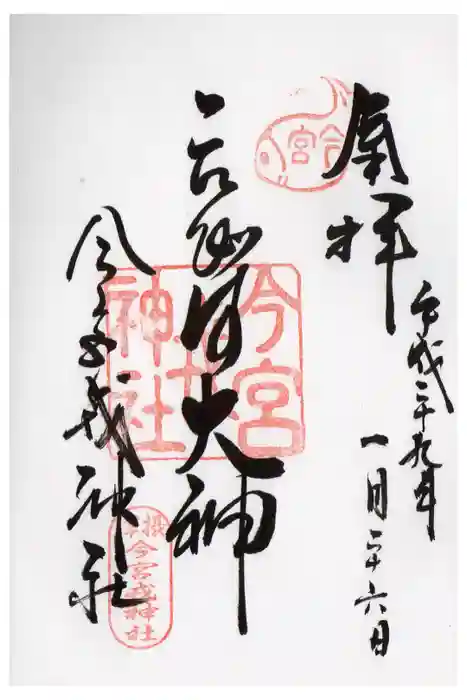 奉拝
平成二十九年
一月二十六日
今宮
大神
今宮戎神社
今宮戎神社
今宮戎神社